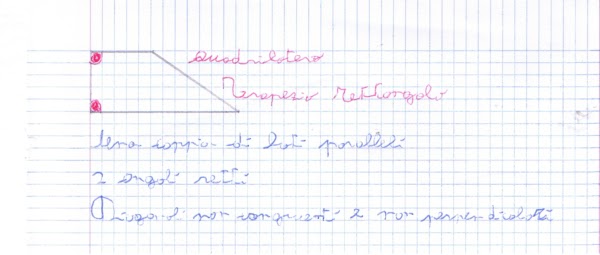 quadrilatero
Trapezio rettangolo
Una coppia di lati paralleli
2 angoli retti
non congruenti e non